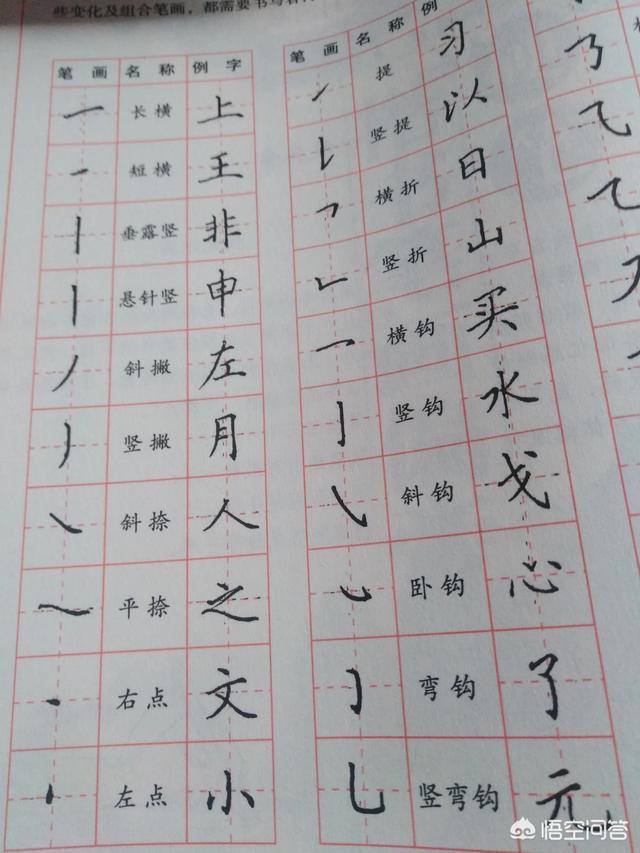 些变化及组合笔画，都需要书写者
笔画 名称 例字
长横 上
短横 王
垂露竖 非
悬针竖 申
斜撇 左
竖撇 月
斜捺 人
平捺 之
右点 文
左点 小
笔画 名称 例
提 习
竖提 以
横折 日
竖折 山
横钩 买
竖钩 水
斜钩 戈
卧钩 心
弯钩 了
竖弯钩 元
悟空问答